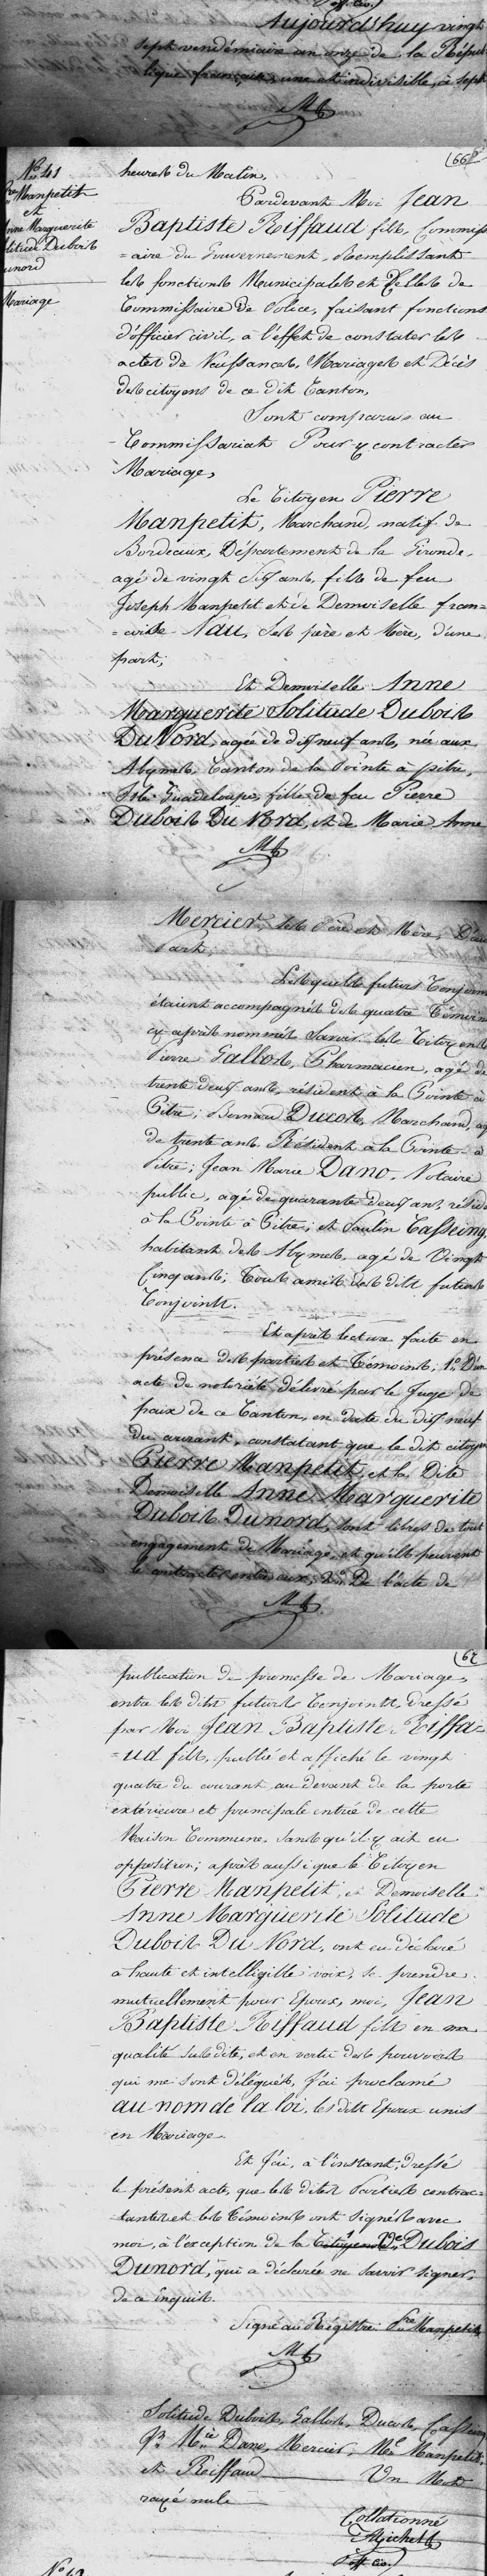 off. civ.
Aujourd'huy vingt
sept vendémiaire an onze de la Répub
lique française, une et indivisible, à sept
66
heures du Matin,
N.º 41
Pre Manpetit
et
Anne Marguerite
Solitude Dubois
Dunord
Mariage
Pardevant Moi Jean
Baptiste Riffaud fils, Commiss
=aire du Gouvernement, Remplissant
les fonctions Municipales et Celles de
Commissaire de Police, faisant fonctions
d'officier civil, à l'effet de constater les
actes de Naissances, Mariages et Décès
des citoyens de ce dit Canton,
Sont comparus au
Commissariat Pour y contracter
Mariage,
Le Citoyen Pierre
Manpetit, Marchand, natif de
Bordeaux, Département de la Gironde,
agé de vingt six ans, fils de feu
Joseph Manpetit et de Demoiselle fran=
=coise Nau, ses père et Mère, d'une
part;
Et Demoiselle Anne
Marguerite Solitude Dubois
Du Nord, agée de dix neuf ans, née aux
Abymes, Canton de la Pointe à pitre,
Isle Guadeloupe, fille de feu Pierre
Dubois Du Nord, et de Marie Anne
Mercier, ses Père et Mère, D'au
Part;
Lesquels futurs Conjoin
étaient accompagnés des quatre Témoins
cy après nommés Savoir. les Citoyens
Pierre Gallos, Pharmacien, agé de
trente deux ans, résident à la Pointe à
Pitre; Bernard Ducos, Marchand, ag
de trente ans. Résident à la Pointe à
Pitre; Jean Marie Dano, Notaire
public, agé de quarante deux ans, réside
à la Pointe à Pitre; et Paulin Cassiong,
habitant des Abymes, agé de Vingt
Cinq ans; Tous amis des dits futurs
Conjoints.
Et après lecture faite en
présence des parties et Témoins; 1.º D'un
acte de notoriété délivré par le Juge de
paix de ce Canton, en date du dix neuf
du courant, constatant que le dit citoyen
Pierre Manpetit et la Dite
Demoiselle Anne Marguerite
Dubois Dunord, sont libres de tout
engagement de Mariage, et qu'ils peuvent
le contracter entre eux; 2.º De l'acte de
67
publication de promesse de Mariage,
entre les dits futurs Conjoints, dressé
par Moi Jean Baptiste Riffa=
=ud fils, publié et affiché le vingt
quatre du courant, au devant de la porte
extérieure et principale entrée de cette
Maison Commune, sans qu'il y ait eu
opposition; après aussi que le Citoyen
Pierre Manpetit, et Demoiselle
Anne Marguerite Solitude
Dubois Du Nord, ont eu déclaré
à haute et intelligible voix, se prendre
mutuellement pour Epoux, moi, Jean
Baptiste Riffaud fils en ma
qualité susdite, et en vertu des pouvoirs
qui me sont délégués, J'ai proclamé
au nom de la loi, les dits Epoux unis
en Mariage.
Et J'ai, à l'instant, dressé
le présent acte, que les dites Parties contrac=
tantes et les Témoins ont signés avec
moi, à l'exception de la Citoyenne Vve Dubois
Dunord, qui a déclarée ne savoir signer,
de ce Enquis.
Signé au Régistre: Pre Manpetit,
Solitude Dubois, Gallos, Ducos, Cassiong
Jn Mie Dano, Mercier, Manpetit,
et Riffaud Un Mot
rayé nule
Collationné
off. civ.